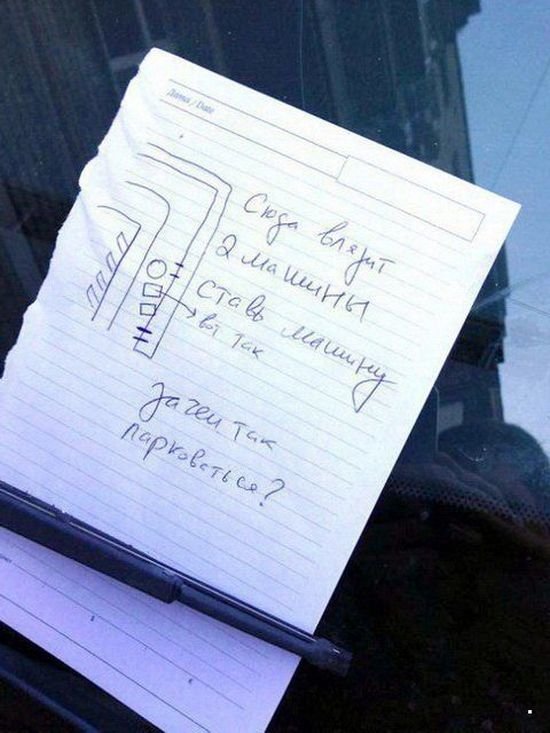 Дата / Date
Сюда влязит
2 машины
ставь машину
вот так
зачем так
парковаться?